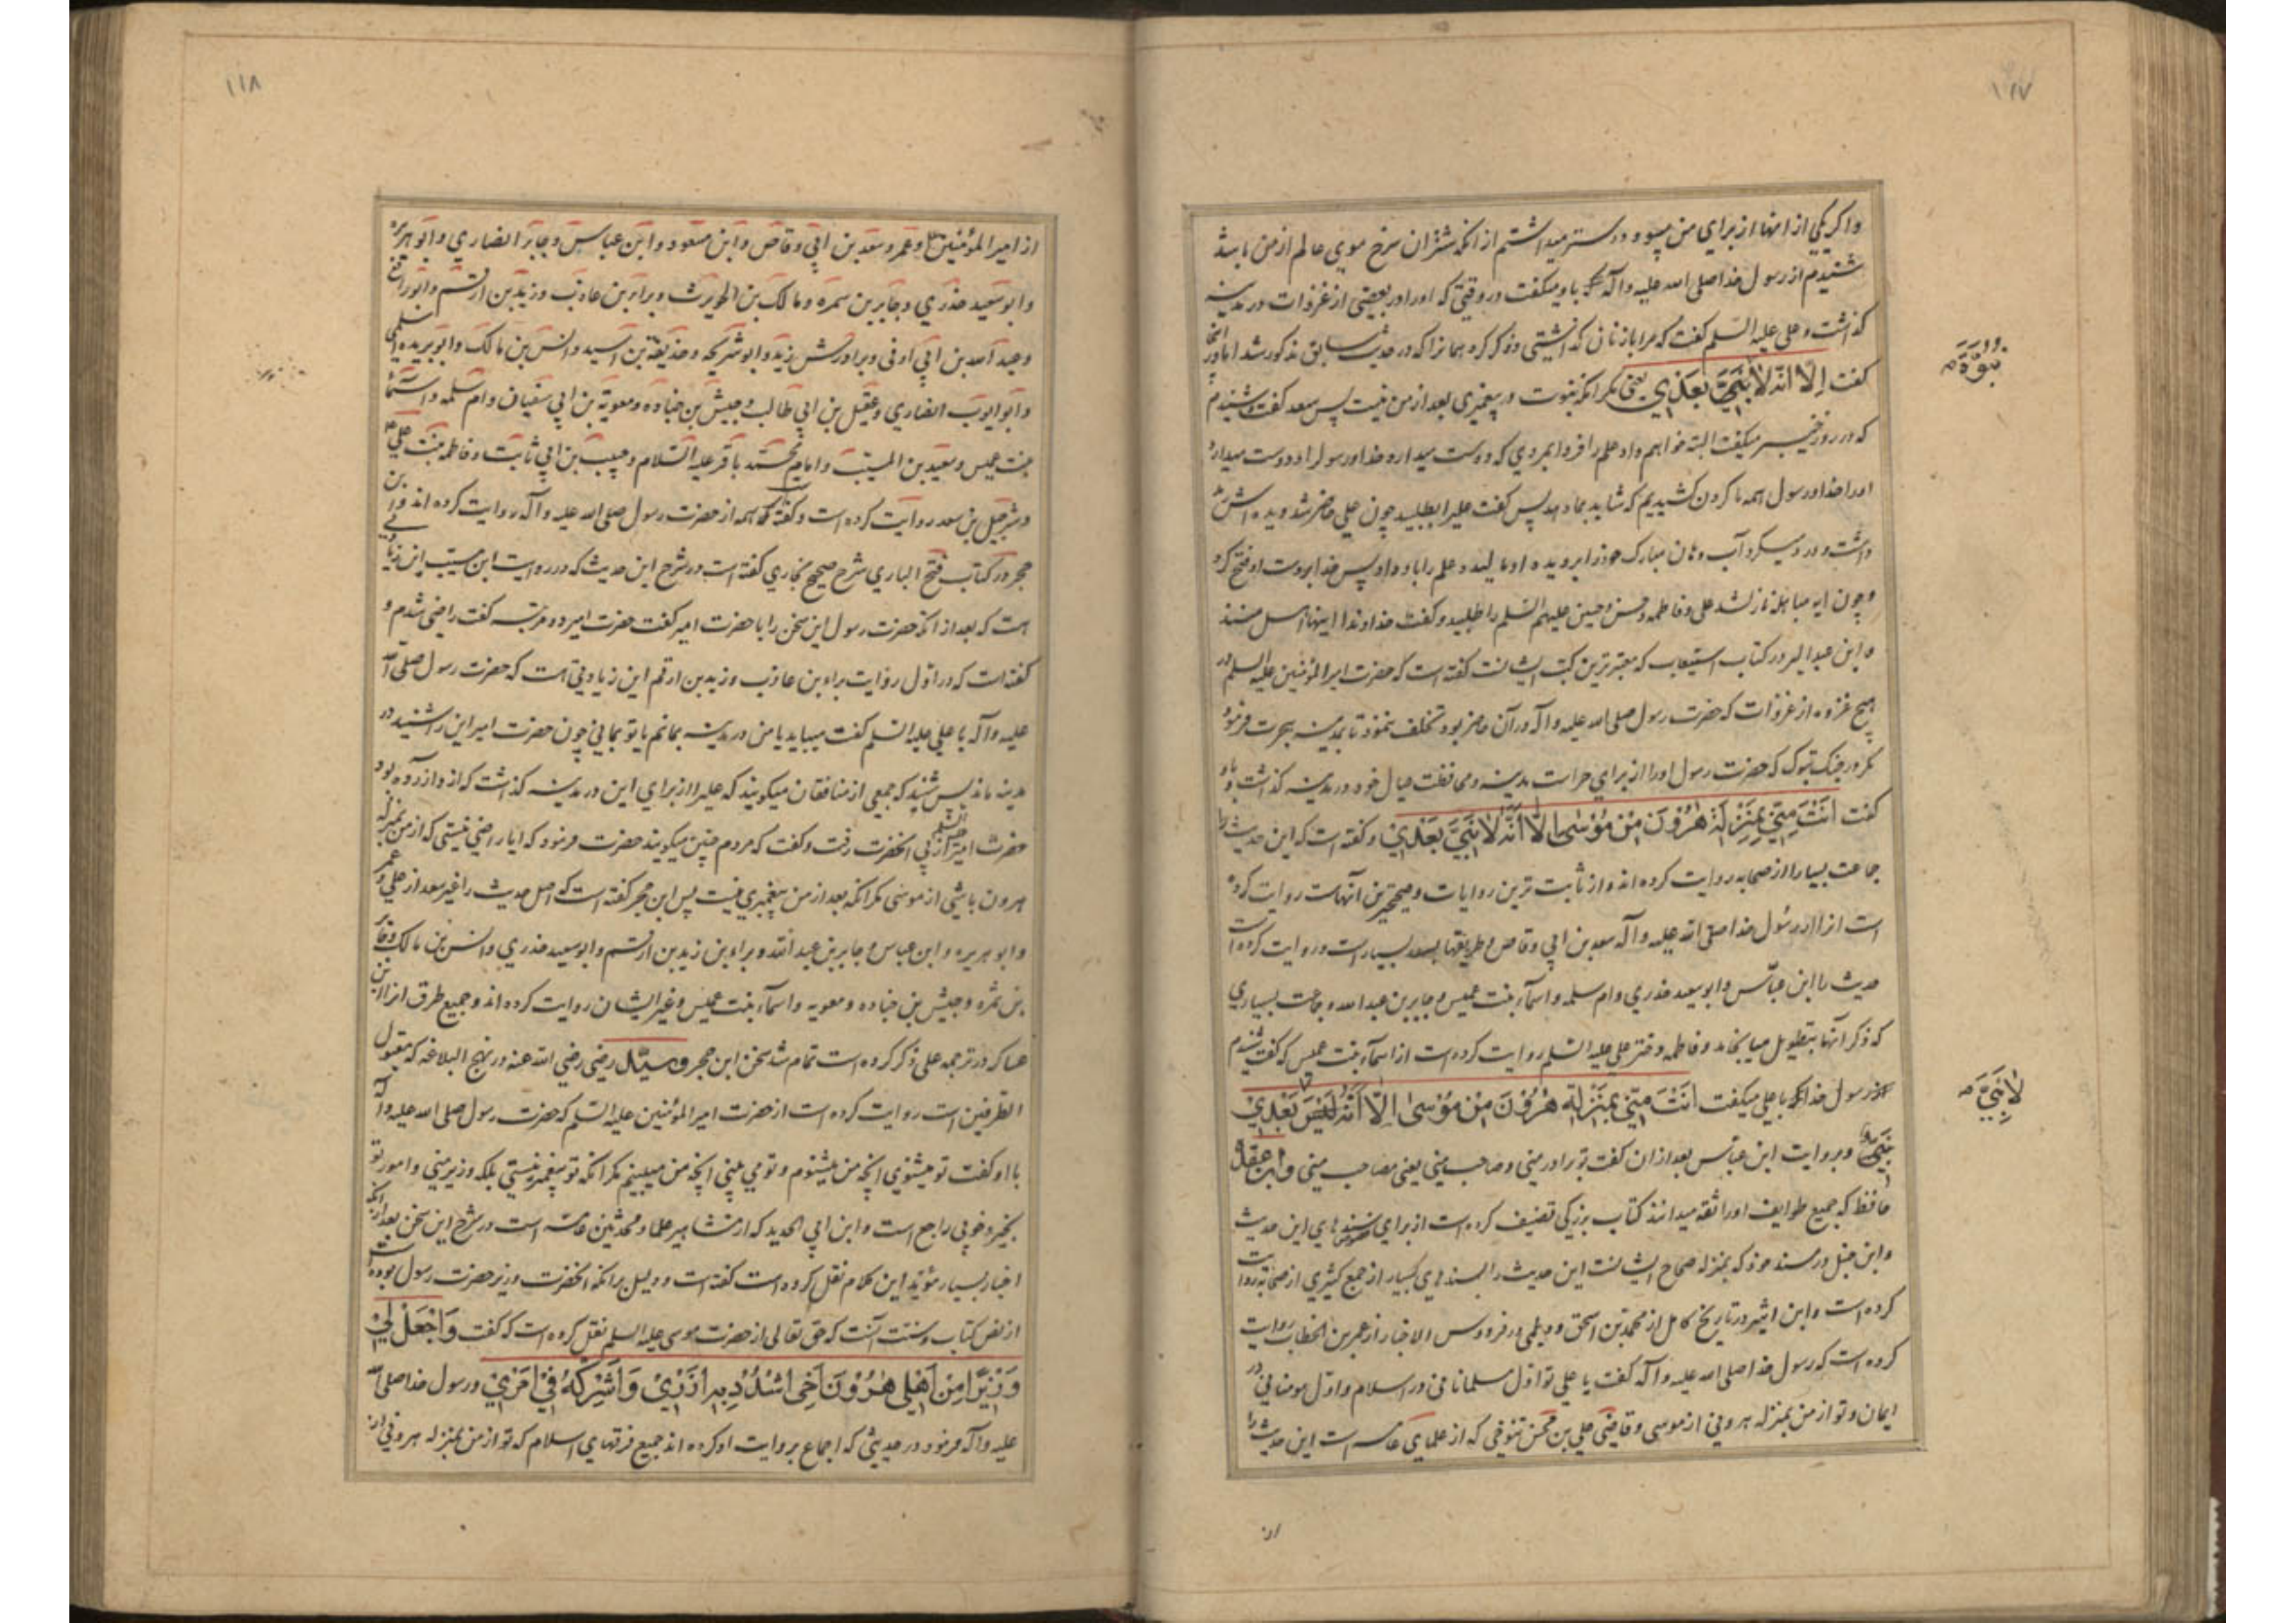 ۱۱۷
واکر یکی از اینها از برای من میبود دوستر میداشتم از انکه شتران سرخ موی عالم از من باشد
شنیدم از رسول خدا صلی الله علیه وآله که باو میکفت در وقتی که اورا در بعضی از غزوات در مدینه
کذاشت وعلی علیه السلم کفت که مرا با زنان کذاشتی وذکر کرد همانرا که در حدیث سابق مذکور شد اما در انجا
کفت اِلّا انّه لا نَبِیَّ بَعدی یعنی مکر انکه نبوت و پیغمبری بعد از من نیست پس سعد کفت وشنیدم
نبوّة
که در روز خیبر میکفت البته خواهم داد علم را فردا بمردی که دوست میدارد خدا ورسول را ودوست میدارد
اورا خدا ورسول همه ما کردن کشیدیم که شاید بما دهد پس کفت علی را بطلبید چون علی حاضر شد ودیده اش
داشت ودرد میکرد آب دهان مبارک خود را بر دیده او مالید وعلم را باو داد پس خدا بر دست او فتح کرد
وچون ایه مباهله نازل شد علی وفاطمه وحسن وحسین علیهم السلم را طلبید وکفت خداوندا اینها اهل منند
وابن عبد البر در کتاب استیعاب که معتبرترین کتب ایشانست کفته است که حضرت امیر المؤمنین علیه السلم در
هیچ غزوه از غزوات که حضرت رسول صلی الله علیه وآله در آن حاضر بود تخلف ننمود تا بمدینه هجرت فرمود
مکر در جنک تبوک که حضرت رسول اورا از برای حراست مدینه ومحافظت عیال خود در مدینه کذاشت وباو
کفت اَنْتَ مِنّی بِمَنْزِلَةِ هٰرُوْنَ مِنْ مُوْسٰی اِلّا اَنَّهُ لا نَبِیَّ بَعْدی وکفته است که این حدیث را
جماعت بسیار از صحابه روایت کرده اند واز ثابت ترین روایات وصحیحترین آنهاست روایت کرده
است انرا از رسول خدا صلی الله علیه وآله سعد بن ابی وقاص وطریقها بسعد بسیار است وروایت کرده است
حدیث را ابن عبّاس وابو سعید خدری وام سلمه واسماء بنت عمیس وجابر بن عبد الله وجماعت بسیاری
که ذکر آنها بتطویل میانجامد وفاطمه دختر علی علیه السلم روایت کرده است از اسماء بنت عمیس که کفت شنیدم
از رسول خدا که با علی میکفت اَنْتَ مِنّی بِمَنْزِلَةِ هٰرُوْنَ مِنْ مُوْسٰی اِلّا اَنَّهُ لَیْسَ بَعْدِیْ
لا نَبِیَّ
نَبِیٌّ وبروایت ابن عبّاس بعد از ان کفت تو برادر منی وصاحب منی یعنی مصاحب منی وابن عقدة
حافظ که جمیع طوایف اورا ثقه میدانند کتاب بزرکی تصنیف کرده است از برای سندهای این حدیث
وابن حنبل در مسند خود که بمنزله صحاح ایشانست این حدیث را بسندهای بسیار از جمع کثیری از صحابه روایت
کرده است وابن اثیر در تاریخ کامل از محمد بن اسحق ودیلمی در فردوس الاخبار از عمر بن الخطاب روایت
کرده است که رسول خدا صلی الله علیه وآله کفت یا علی تو اوّل مسلمانانی در اسلام واوّل مومنانی در
ایمان وتو از من بمنزله هرونی از موسی وقاضی علی بن محسن تنوخی که از علمای عامه است این حدیث را
از
۱۱۸
از امیر المؤمنین وعمر وسعد بن ابی وقاص وابن مسعود وابن عباس وجابر انصاری وابو هریره
وابو سعید خدری وجابر بن سمره ومالک بن الحویرث وبراء بن عازب وزید بن ارقم وابو رافع
وعبد الله بن ابی اوفی وبرادرش زید وابو شریحه وحذیفة بن اسید وانس بن مالک وابو بریده اسلمی
وابو ایوب انصاری وعقیل بن ابی طالب وحبیش بن جناده ومعویة بن ابی سفیان وام سلمه واسماء
بنت عمیس وسعید بن المسیب وامام محمّد باقر علیه السّلام وحبیب بن ابی ثابت وفاطمه بنت علی
وشرحبیل بن سعد روایت کرده است وکفته که همه از حضرت رسول صلی الله علیه وآله روایت کرده اند وابن
حجر در کتاب فتح الباری شرح صحیح بخاری کفته است در شرح این حدیث که در روایت ابن مسیب این زیادتی
هست که بعد از انکه حضرت رسول این سخن را با حضرت امیر کفت حضرت امیر دو مرتبه کفت راضی شدم و
کفته است که در اوّل روایت براء بن عازب وزید بن ارقم این زیادتی هست که حضرت رسول صلّی الله
علیه وآله با علی علیه السلم کفت میباید یا من در مدینه بمانم یا تو بمانی چون حضرت امیر این را شنید در
مدینه ماند پس شنید که جمعی از منافقان میکویند که علی را از برای این در مدینه کذاشت که از او آزرده بود
حضرت امیر علیه السلم از پی انحضرت رفت وکفت که مردم چنین میکویند حضرت فرمود که ایا راضی نیستی که از من بمنزله
هرون باشی از موسی مکر انکه بعد از من پیغمبری نیست پس ابن حجر کفته است که اصل حدیث را غیر سعد از علی وعمر
وابو هریره وابن عباس وجابر بن عبد الله وبراء بن زید بن ارقم وابو سعید خدری وانس بن مالک وجابر
بن سمره وحبیش بن جناده ومعویه واسماء بنت عمیس وغیر ایشان روایت کرده اند وجمیع طرق انرا ابن
عساکر در ترجمه علی ذکر کرده است تمام شد سخن ابن حجر وسیّد رضی رضی الله عنه در نهج البلاغه که مقبول
الطرفین است روایت کرده است از حضرت امیر المؤمنین علیه السّلم که حضرت رسول صلی الله علیه وآله
با او کفت تو میشنوی انچه من میشنوم وتو می بینی انچه من میبینم مکر انکه تو پیغمبر نیستی بلکه وزیر منی وامور تو
بخیر وخوبی راجع است وابن ابی الحدید که از مشاهیر علما ومحدثین عامّه است در شرح این سخن بعد از انکه
اخبار بسیار مؤیّد این کلام نقل کرده است کفته است ودلیل بر انکه انحضرت وزیر حضرت رسول بوده است
از نص کتاب وسنت آنست که حق تعالی از حضرت موسی علیه السلم نقل کرده است که کفت وَاجْعَلْ لِیْ
وَزِیْرًا مِنْ اَهْلِی هٰرُوْنَ اَخِی اشْدُدْ بِهِ اَزْرِیْ وَاَشْرِکْهُ فِیْ اَمْرِیْ ورسول خدا صلی الله
علیه وآله فرمود در حدیثی که اجماع بروایت او کرده اند جمیع فرقهای اسلام که تو از من بمنزله هرونی از